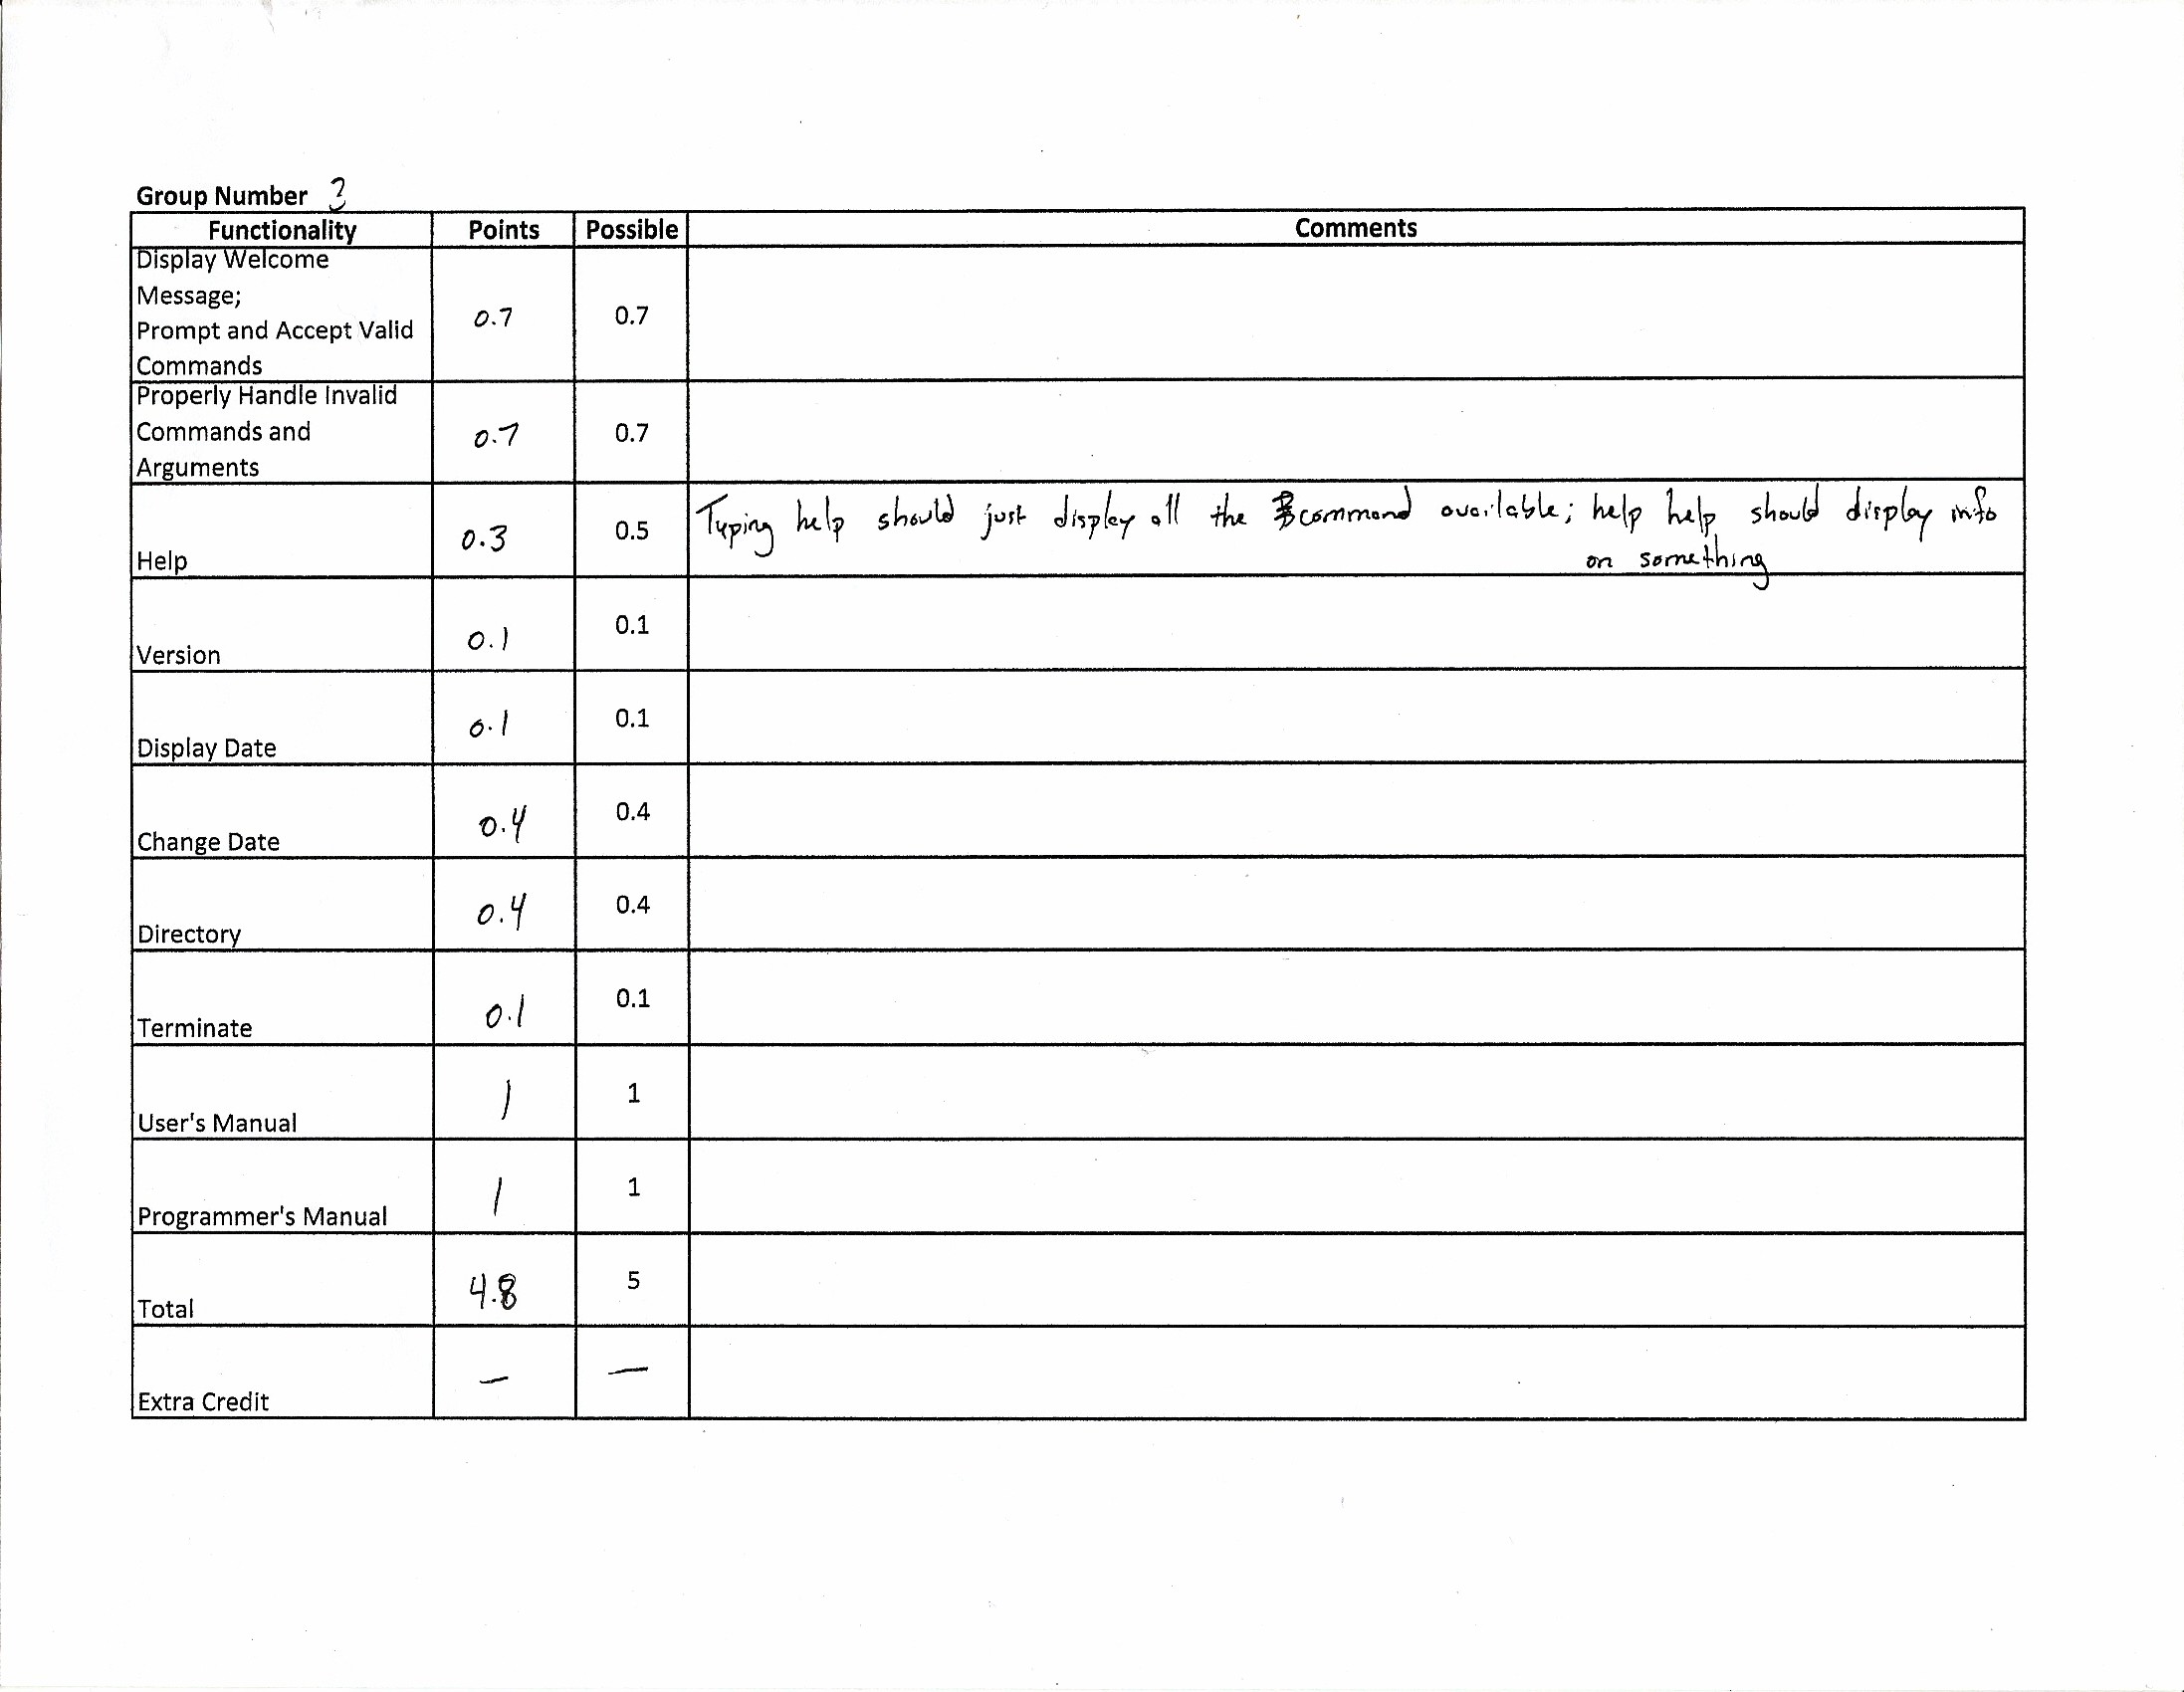 Group Number 3
Functionality Points Possible Comments
Display Welcome
Message;
Prompt and Accept Valid
Commands 0.7 0.7
Properly Handle Invalid
Commands and
Arguments 0.7 0.7
Help 0.3 0.5 Typing help should just display all the command available; help help should display info
on something
Version 0.1 0.1
Display Date 0.1 0.1
Change Date 0.4 0.4
Directory 0.4 0.4
Terminate 0.1 0.1
User's Manual 1 1
Programmer's Manual 1 1
Total 4.8 5
Extra Credit — —